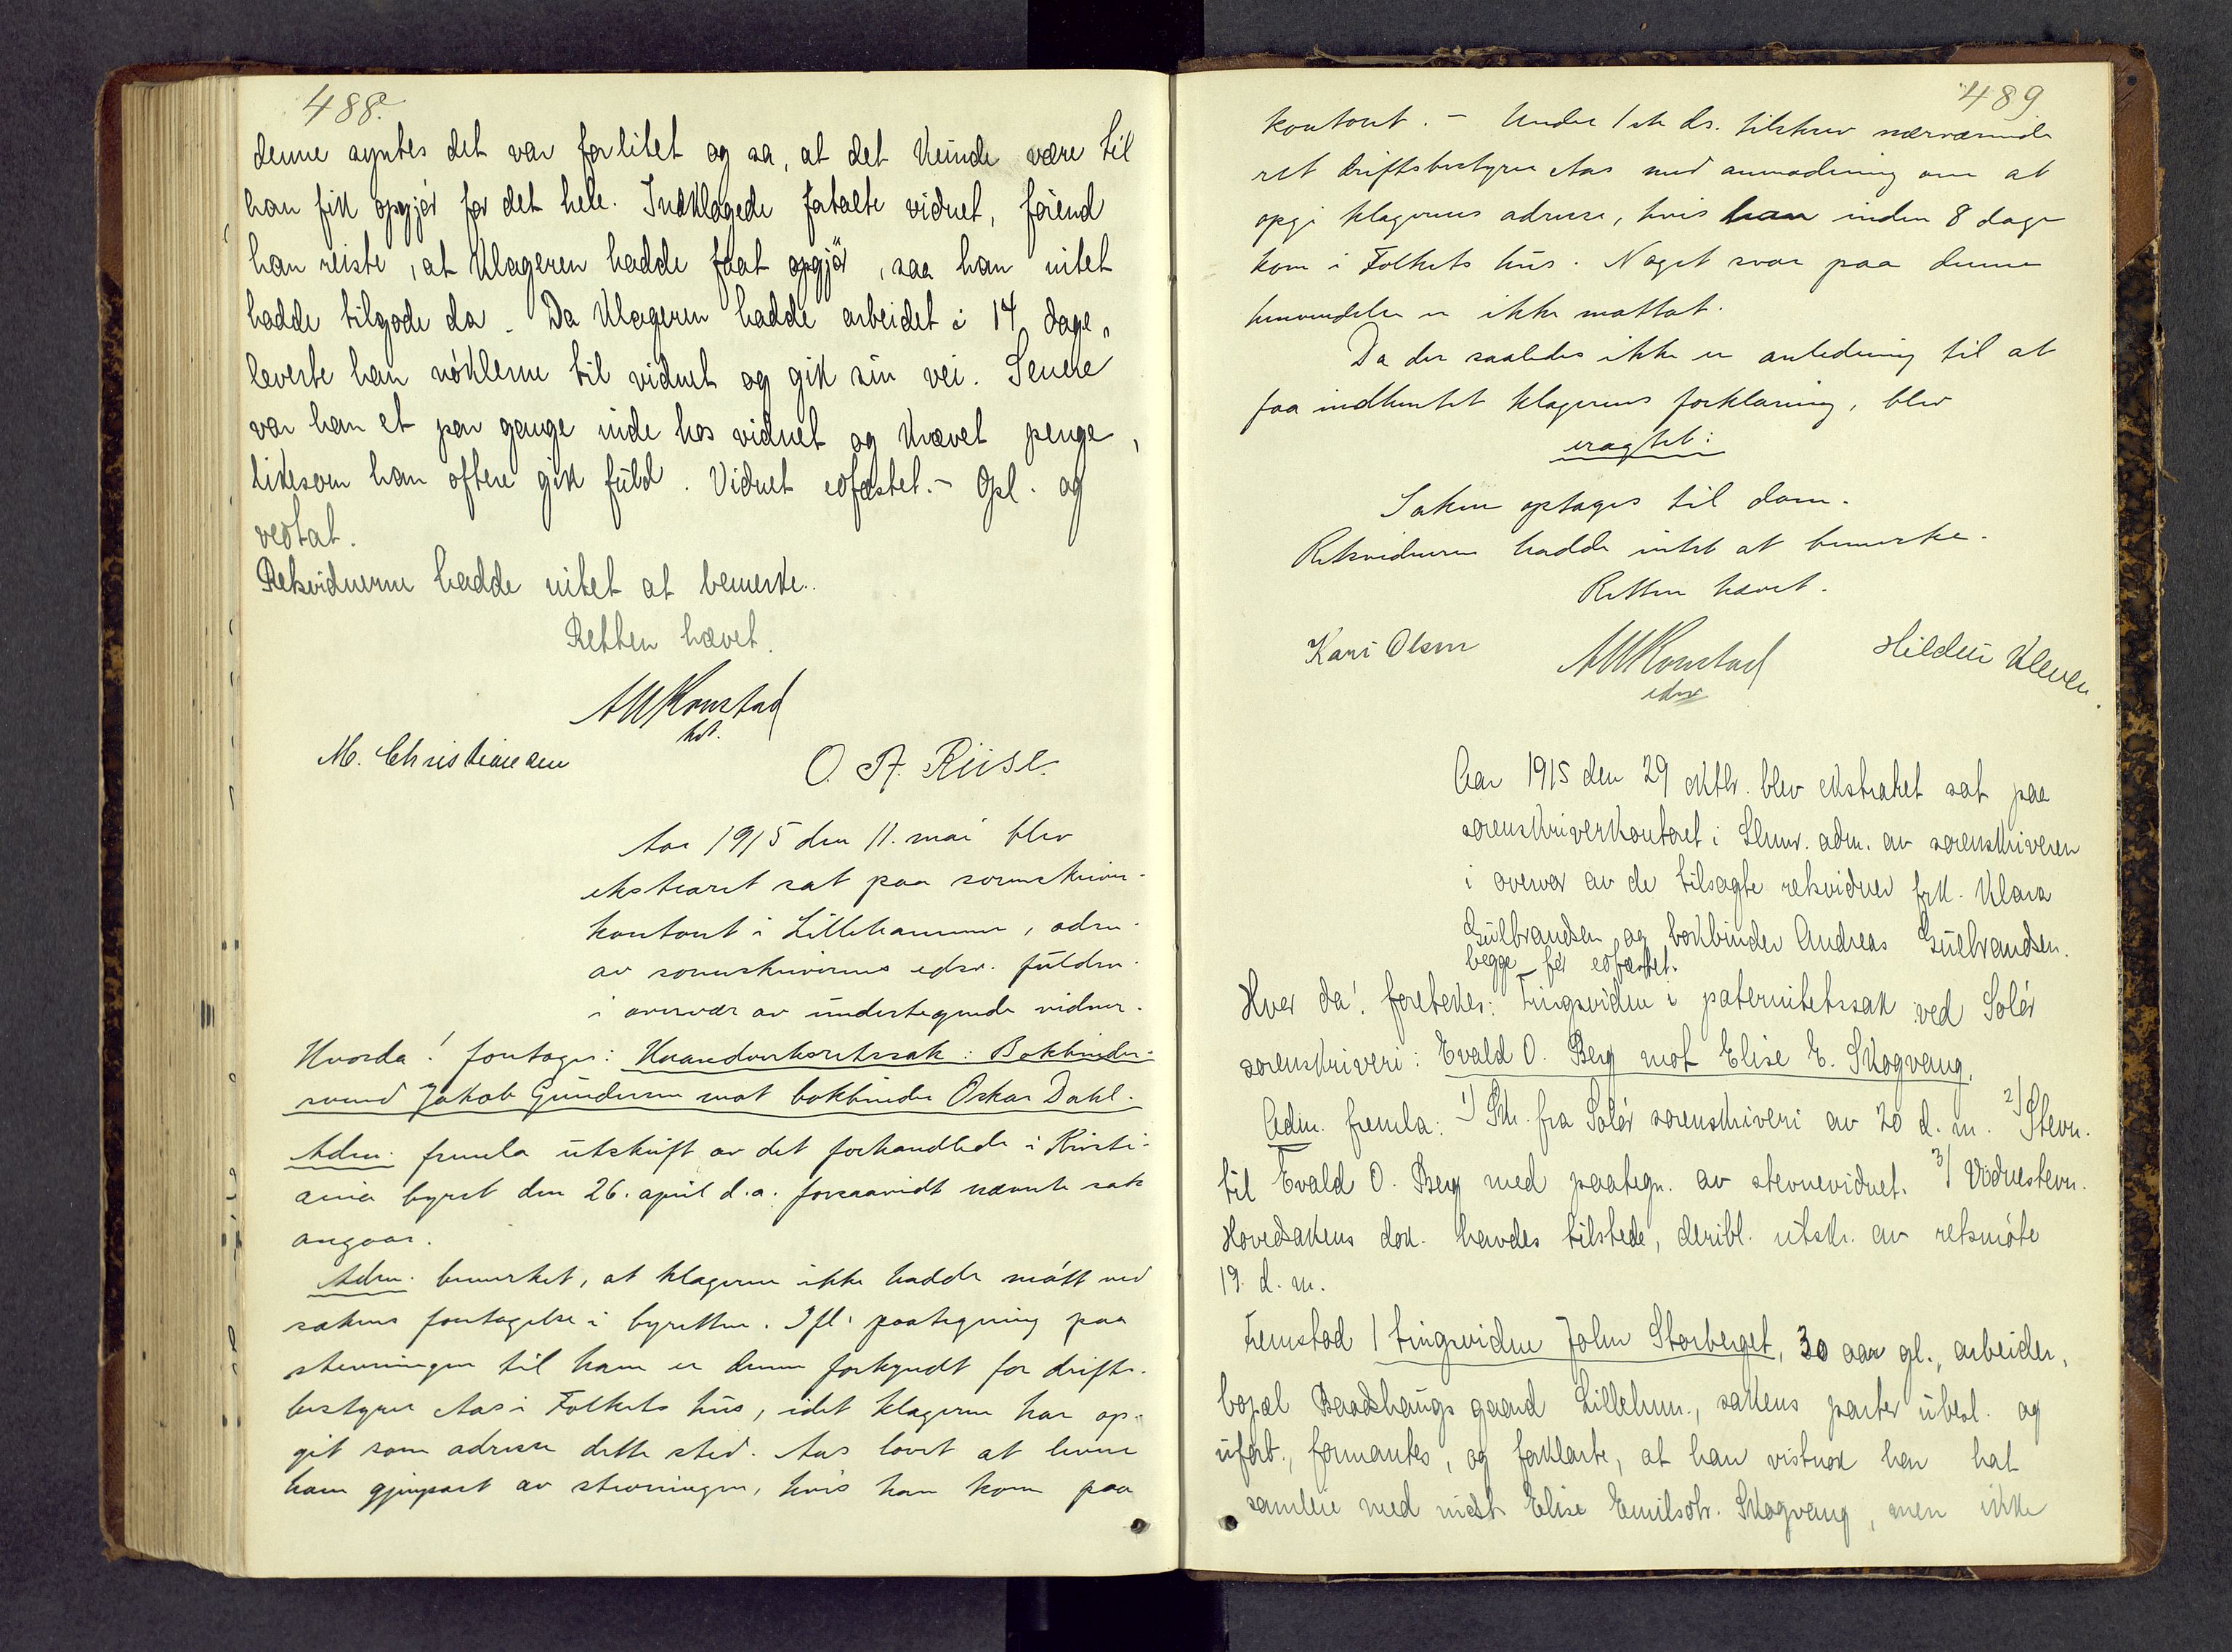 488.
denne syntes det var for litet og sa, at det kunde være til
han fik opgjør for det hele. Indklagede fortalte vidnet, førend
han reiste, at klageren hadde faat opgjør, saa han intet
hadde tilgode da. Da klageren hadde arbeidet i 14 dage,
leverte han nøklerne til vidnet og gik sin vei. Senere
var han et par gange inde hos vidnet og krævet penge,
likesom han oftere gik fuld. Vidnet edfæstet. - Opl. og
vedtat.
Retsvidnerne hadde intet at bemerke.
Retten hævet.
AWKonstad
kst.
M. Christiansen
O. A. Riise.
Aar 1915 den 11. mai blev
ekstraret sat paa sorenskriver-
kontoret i Lillehammer, adm.
av sorenskriverens edsv. fuldm.
i overvær av undertegnede vidner.
Hvorda! foretoges: Haandverksretssak: Bokbinder-
svend Jakob Gundersen mot bokbinder Oskar Dahl.
Adm. fremla utskrift av det forhandlede i Kristi-
ania byret den 26. april d.a. forsaavidt nævnte sak
angaar.
Adm. bemerket, at klageren ikke hadde møtt ved
sakens foretagelse i byretten. Ifl. paategning paa
stevningen til ham er denne forkyndt for drifts-
bestyrer Aas i Folkets hus, idet klageren har op-
git som adresse dette sted. Aas lovet at levere
ham gjenpart av stevningen, hvis han kom paa
489
kontoret. - Under 1ste ds. tilskrev nærværende
ret driftsbestyrer Aas med anmodning om at
opgi klagerens adresse, hvis han inden 8 dage
kom i Folkets hus. Noget svar paa denne
henvendelse er ikke mottat.
Da der saaledes ikke er anledning til at
faa indhentet klagerens forklaring, blev
eragtet:
Saken optages til dom.
Retsvidnerne hadde intet at bemerke.
Retten hævet.
Kari Olsen
AWKonstad
edsv
Hildur Kleven.
Aar 1915 den 29 oktbr. blev ekstraret sat paa
sorenskriverkontoret i Lhmr. adm. av sorenskriveren
i overvær av de tilsagte retsvidner frk. Klara
Gulbrandsen og bokbinder Andreas Gulbrandsen.
begge før edfæstet.
Hver da! foretokes: Tingsvidne i paternitetssak ved Solør
sorenskriveri: Evald O. Berg mot Elise E. Skogvang.
Adm. fremla: 1) Skr. fra Solør sorenskriveri av 20 d. m. 2) Stevn.
til Evald O. Berg med paategn. av stevnevidnet. 3) Vidnestevn.
Hovedsakens dok. havdes tilstede, deribl. utskr. av retsmøte
19. d. m.
Fremstod 1 tingsvidne John Storberget, 30 aar gl., arbeider,
bopæl Baadshaugs gaard Lillehmr., sakens parter ubesl. og
ubesv., formantes, og forklarte, at han vistnok har hat
samleie med indst. Elise Emilsdtr. Skogvang, men ikke